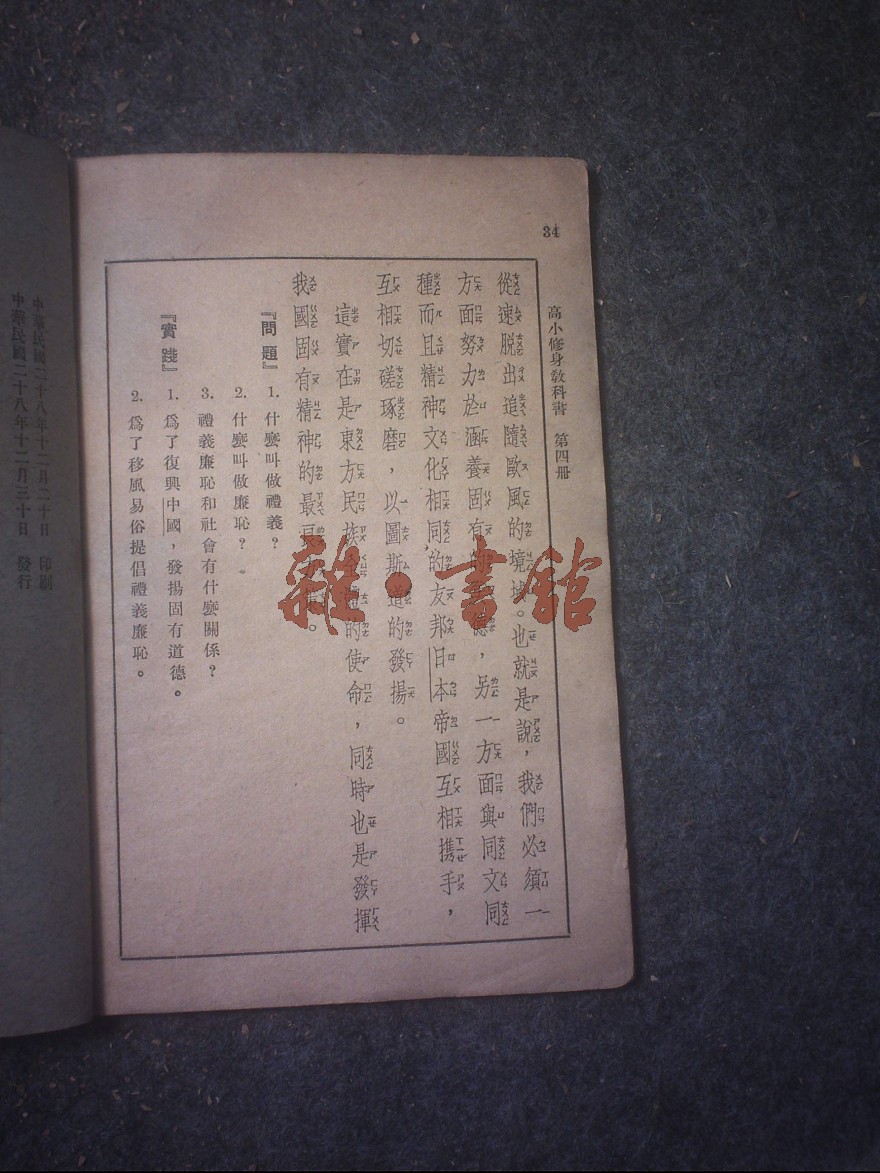 34
高小修身教科書 第四册
從速脫出追隨歐風的境域。也就是說，我們必須一
方面努力於涵養固有的德，另一方面與同文同
種而且精神文化相同的友邦日本帝國互相携手，
互相切磋琢磨，以圖斯道的發揚。
這實在是東方民族的使命，同時也是發揮
我國固有精神的最。
『問題』 1. 什麼叫做禮義？
2. 什麼叫做廉恥？
3. 禮義廉恥和社會有什麼關係？
『實踐』 1. 爲了復興中國，發揚固有道德。
2. 爲了移風易俗提倡禮義廉恥。
中華民國二十八年十二月二十日 印刷
中華民國二十八年十二月三十日 發行
雜·書館